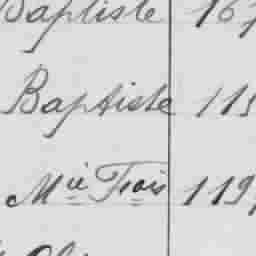 Baptiste 167
Baptiste 115
Mie Frois 119